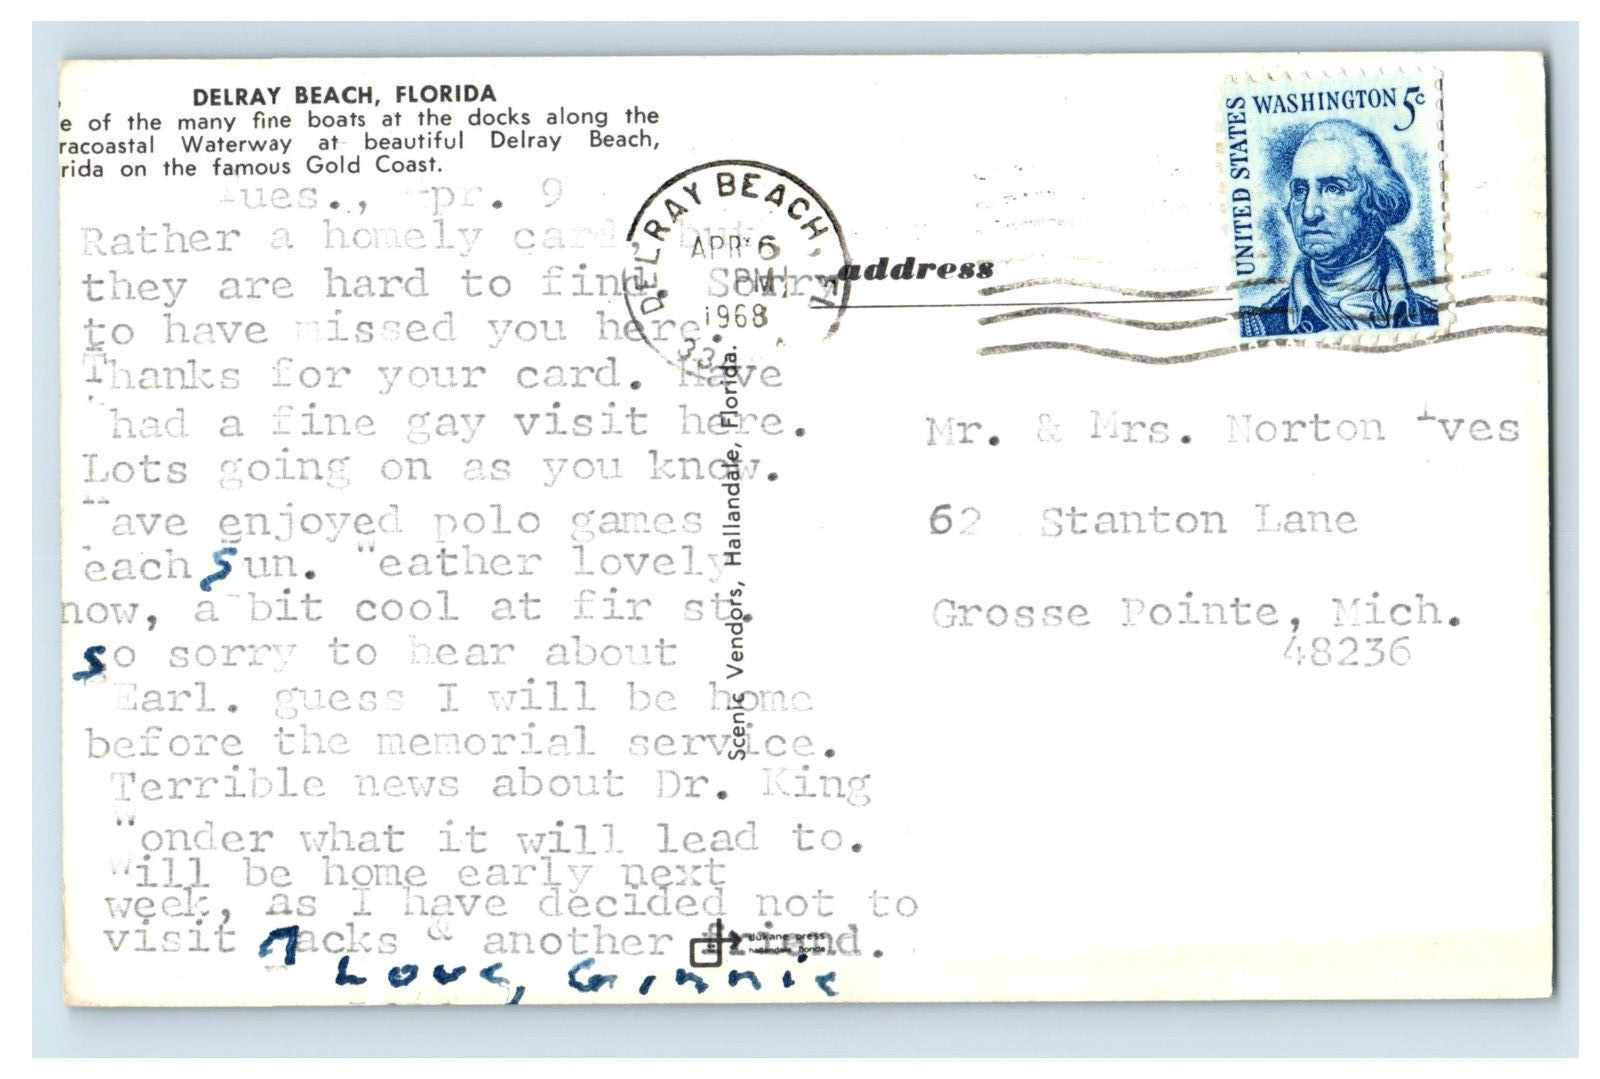 DELRAY BEACH, FLORIDA
e of the many fine boats at the docks along the
racoastal Waterway at beautiful Delray Beach,
rida on the famous Gold Coast.
ues., pr. 9
Rather a homely card, but
they are hard to find. Sorry
to have missed you here.
Thanks for your card. Have
had a fine gay visit here.
Lots going on as you know.
"ave enjoyed polo games
each Sun. "eather lovely
now, a bit cool at fir st.
So sorry to hear about
Earl. guess I will be home
before the memorial service.
Terrible news about Dr. King
"onder what it will lead to.
Will be home early next
week, as I have decided not to
visit Macks & another friend.
Love, Ginnie
Scenic Vendors, Hallandale, Florida.
dukane press
hallandale florida
DELRAY BEACH,
APR 6
PM
1968
33
address
UNITED STATES
WASHINGTON 5c
Mr. & Mrs. Norton Ives
62 Stanton Lane
Grosse Pointe, Mich.
48236